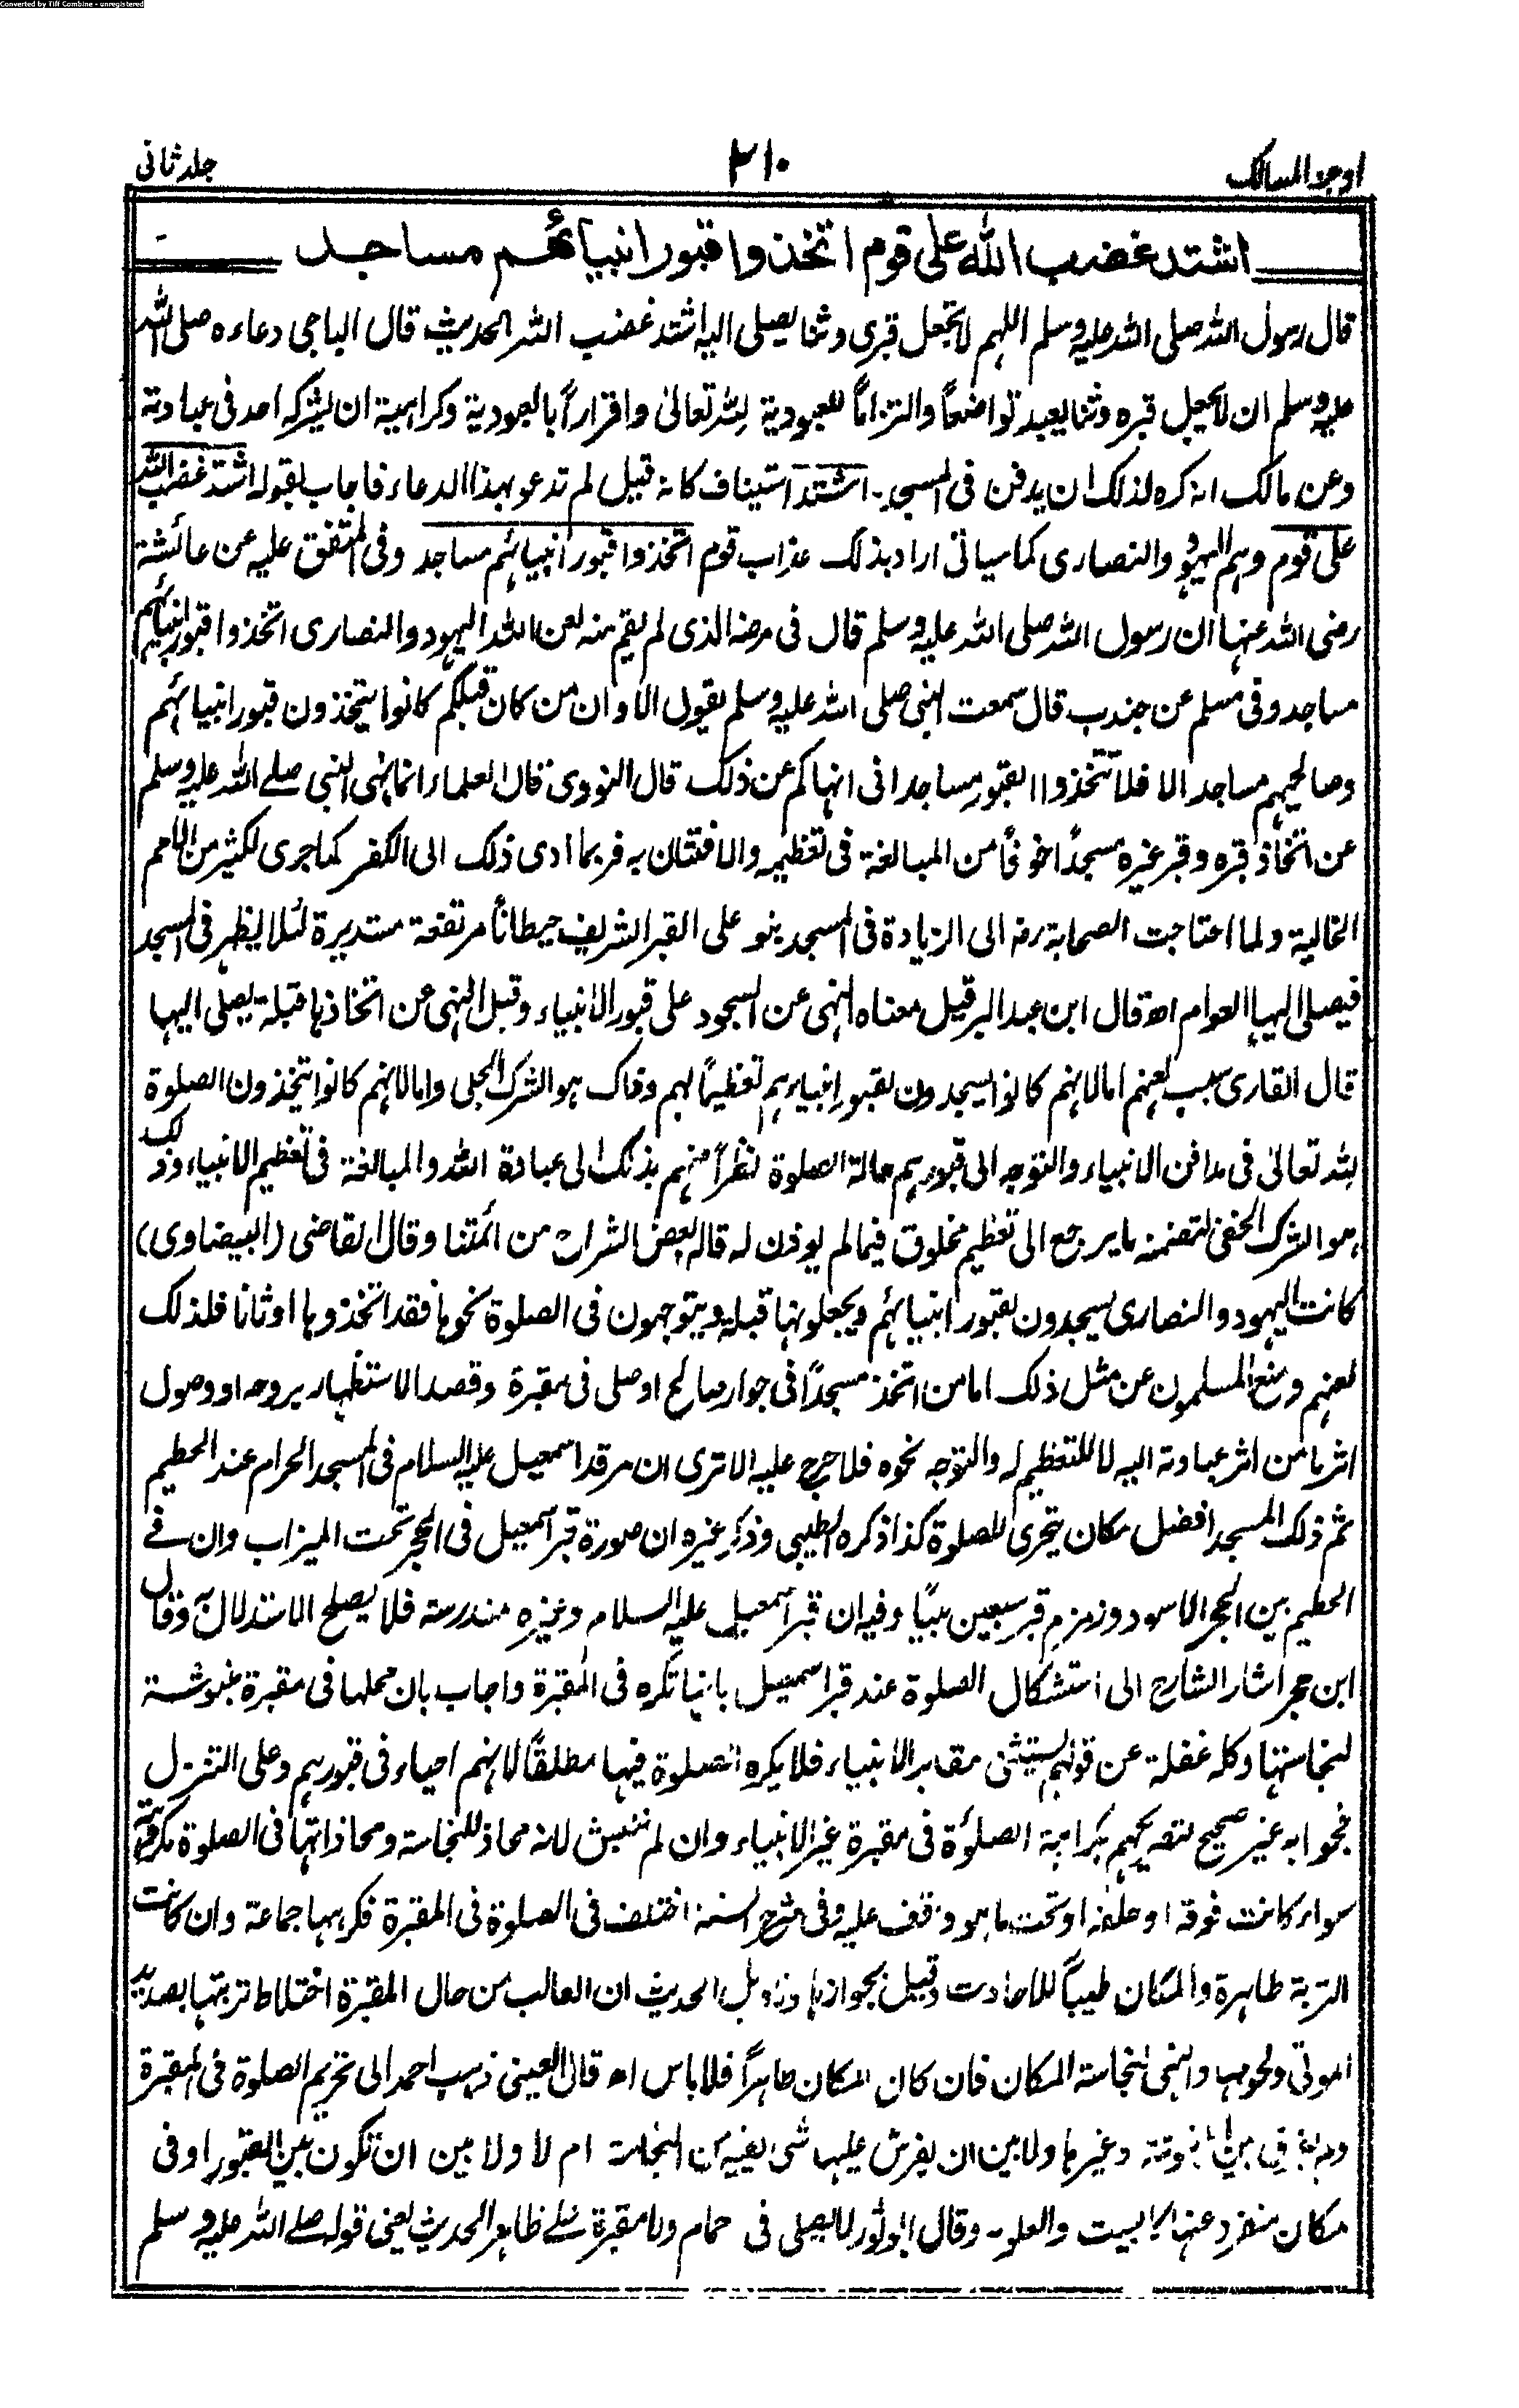 Converted by Tiff Combine - unregistered
اوجز المسالك ٣١٠ جلد ثانی
اشتد غضب الله على قوم اتخذوا قبور انبيائهم مساجد
قال رسول الله صلى الله عليه وسلم اللهم لا تجعل قبری وثنا يصلى اليه اشتد غضب الله الحديث قال الباجی دعاءه صلى الله
عليه وسلم ان لا يجعل قبره وثنا يعبد تواضعاً والتزاماً للعبودية لله تعالىٰ واقراراً بالعبودية وكراهية ان يشركه احد فی عبادته
وعن مالك انه كره لذلك ان يدفن فی المسجد۔ اشتد استيناف كانه قيل لم تدعو بهذا الدعاء فاجاب بقوله اشتد غضب الله
على قوم وهم اليهود والنصاری كما سياتی اراد بذلك عذاب قوم اتخذوا قبور انبيائهم مساجد وفی المتفق عليه عن عائشة
رضی الله عنها ان رسول الله صلى الله عليه وسلم قال فی مرضه الذی لم يقم منه لعن الله اليهود والنصاری اتخذوا قبور انبيائهم
مساجد وفی مسلم عن جندب قال سمعت النبی صلى الله عليه وسلم يقول الا وان من كان قبلكم كانوا يتخذون قبور انبيائهم
وصالحيهم مساجد الا فلا تتخذوا القبور مساجد انی انهاكم عن ذلك قال النووی قال العلماء انما نهی النبی صلے الله عليه وسلم
عن اتخاذ قبره وقبر غيره مسجداً خوفاً من المبالغة فی تعظيمه والافتتان به فربما ادی ذلك الى الكفر كما جری لكثير من الامم
الخالية ولما احتاجت الصحابة رضہ الى الزيادة فی المسجد بنو على القبر الشريف حيطاناً مرتفعة مستديرة لئلا يظهر فی المسجد
فيصلى اليها العوام اھ قال ابن عبد البر قيل معناه النهی عن السجود على قبور الانبياء وقيل النهی عن اتخاذها قبلة يصلى اليها
قال القاری سبب لعنهم اما لانهم كانوا يسجدون لقبور انبياءهم تعظيماً لهم وذاك هو الشرك الجلی واما لانهم كانوا يتخذون الصلوة
لله تعالىٰ فی مدافن الانبياء والتوجه الى قبورهم حالة الصلوة نظراً منهم بذلك الى عبادة الله والمبالغة فی تعظيم الانبياء وذلك
هو الشرك الخفی لتضمنه ما يرجع الى تعظيم مخلوق فيما لم يوذن له قاله بعض الشراح من ائمتنا وقال القاضی (البيضاوی)
كانت اليهود والنصاری يسجدون لقبور انبيائهم ويجعلونها قبلة ويتوجهون فی الصلوة نحوها فقد اتخذوها اوثانا فلذلك
لعنهم ومنع المسلمون عن مثل ذلك اما من اتخذ مسجداً فی جوار صالح اوصلى فی مقبرة وقصد الاستظهار بروحه او وصول
اثر ما من اثر عبادته اليه لا للتعظيم له والتوجه نحوه فلا حرج عليه الا تری ان مرقد اسمعيل عليه السلام فی المسجد الحرام عند الحطيم
ثم ذلك المسجد افضل مكان يتحری للصلوة كذا ذكره الطيبی وذكر غيره ان صورة قبر اسمعيل فی الحجر تحت الميزاب وان فے
الحطيم بين الحجر الاسود وزمزم قبر سبعين نبيًا وفيه ان قبر اسمعيل عليه السلام وغيره مندرسة فلا يصلح الاستدلال به وقال
ابن حجر اشار الشارح الى استشكال الصلوة عند قبر اسمعيل بانها تكره فی المقبرة واجاب بان محلها فی مقبرة منبوشة
لنجاستها وكله غفلة عن قولهم يستثنی مقابر الانبياء فلا يكره الصلوة فيها مطلقاً لانهم احياء فی قبورهم وعلى التنزل
فجوابه غير صحيح لتصريحهم بكراهة الصلوٰة فی مقبرة غير الانبياء وان لم تنبش لانه محاذ للنجاسة ومحاذاتها فی الصلوة مكروهة
سواء كانت فوقه او خلفه او تحت ما هو وقف عليه وفی شرح السنة اختلف فی الصلوة فی المقبرة فكرهها جماعة وان كانت
التربة طاهرة والمكان طيباً للاحاديث وقيل بجوازها وتاويل الحديث ان الغالب من حال المقبرة اختلاط تربتها بصديد
الموتی ولحومها والنهی لنجاسة المكان فان كان المكان طاهراً فلا باس اھ قال العينی ذهب احمد الى تحريم الصلوة فی المقبرة
وغيرها ولا بين ان يفرش عليها شئ يقيه من النجاسة ام لا ولا بين ان تكون بين القبور او فی
مكان منفرد عنها كالبيت والعلو۔ وقال ابوثور لا يصلى فی حمام ولا مقبرة علے ظاهر الحديث يعنی قوله صلے الله عليه وسلم